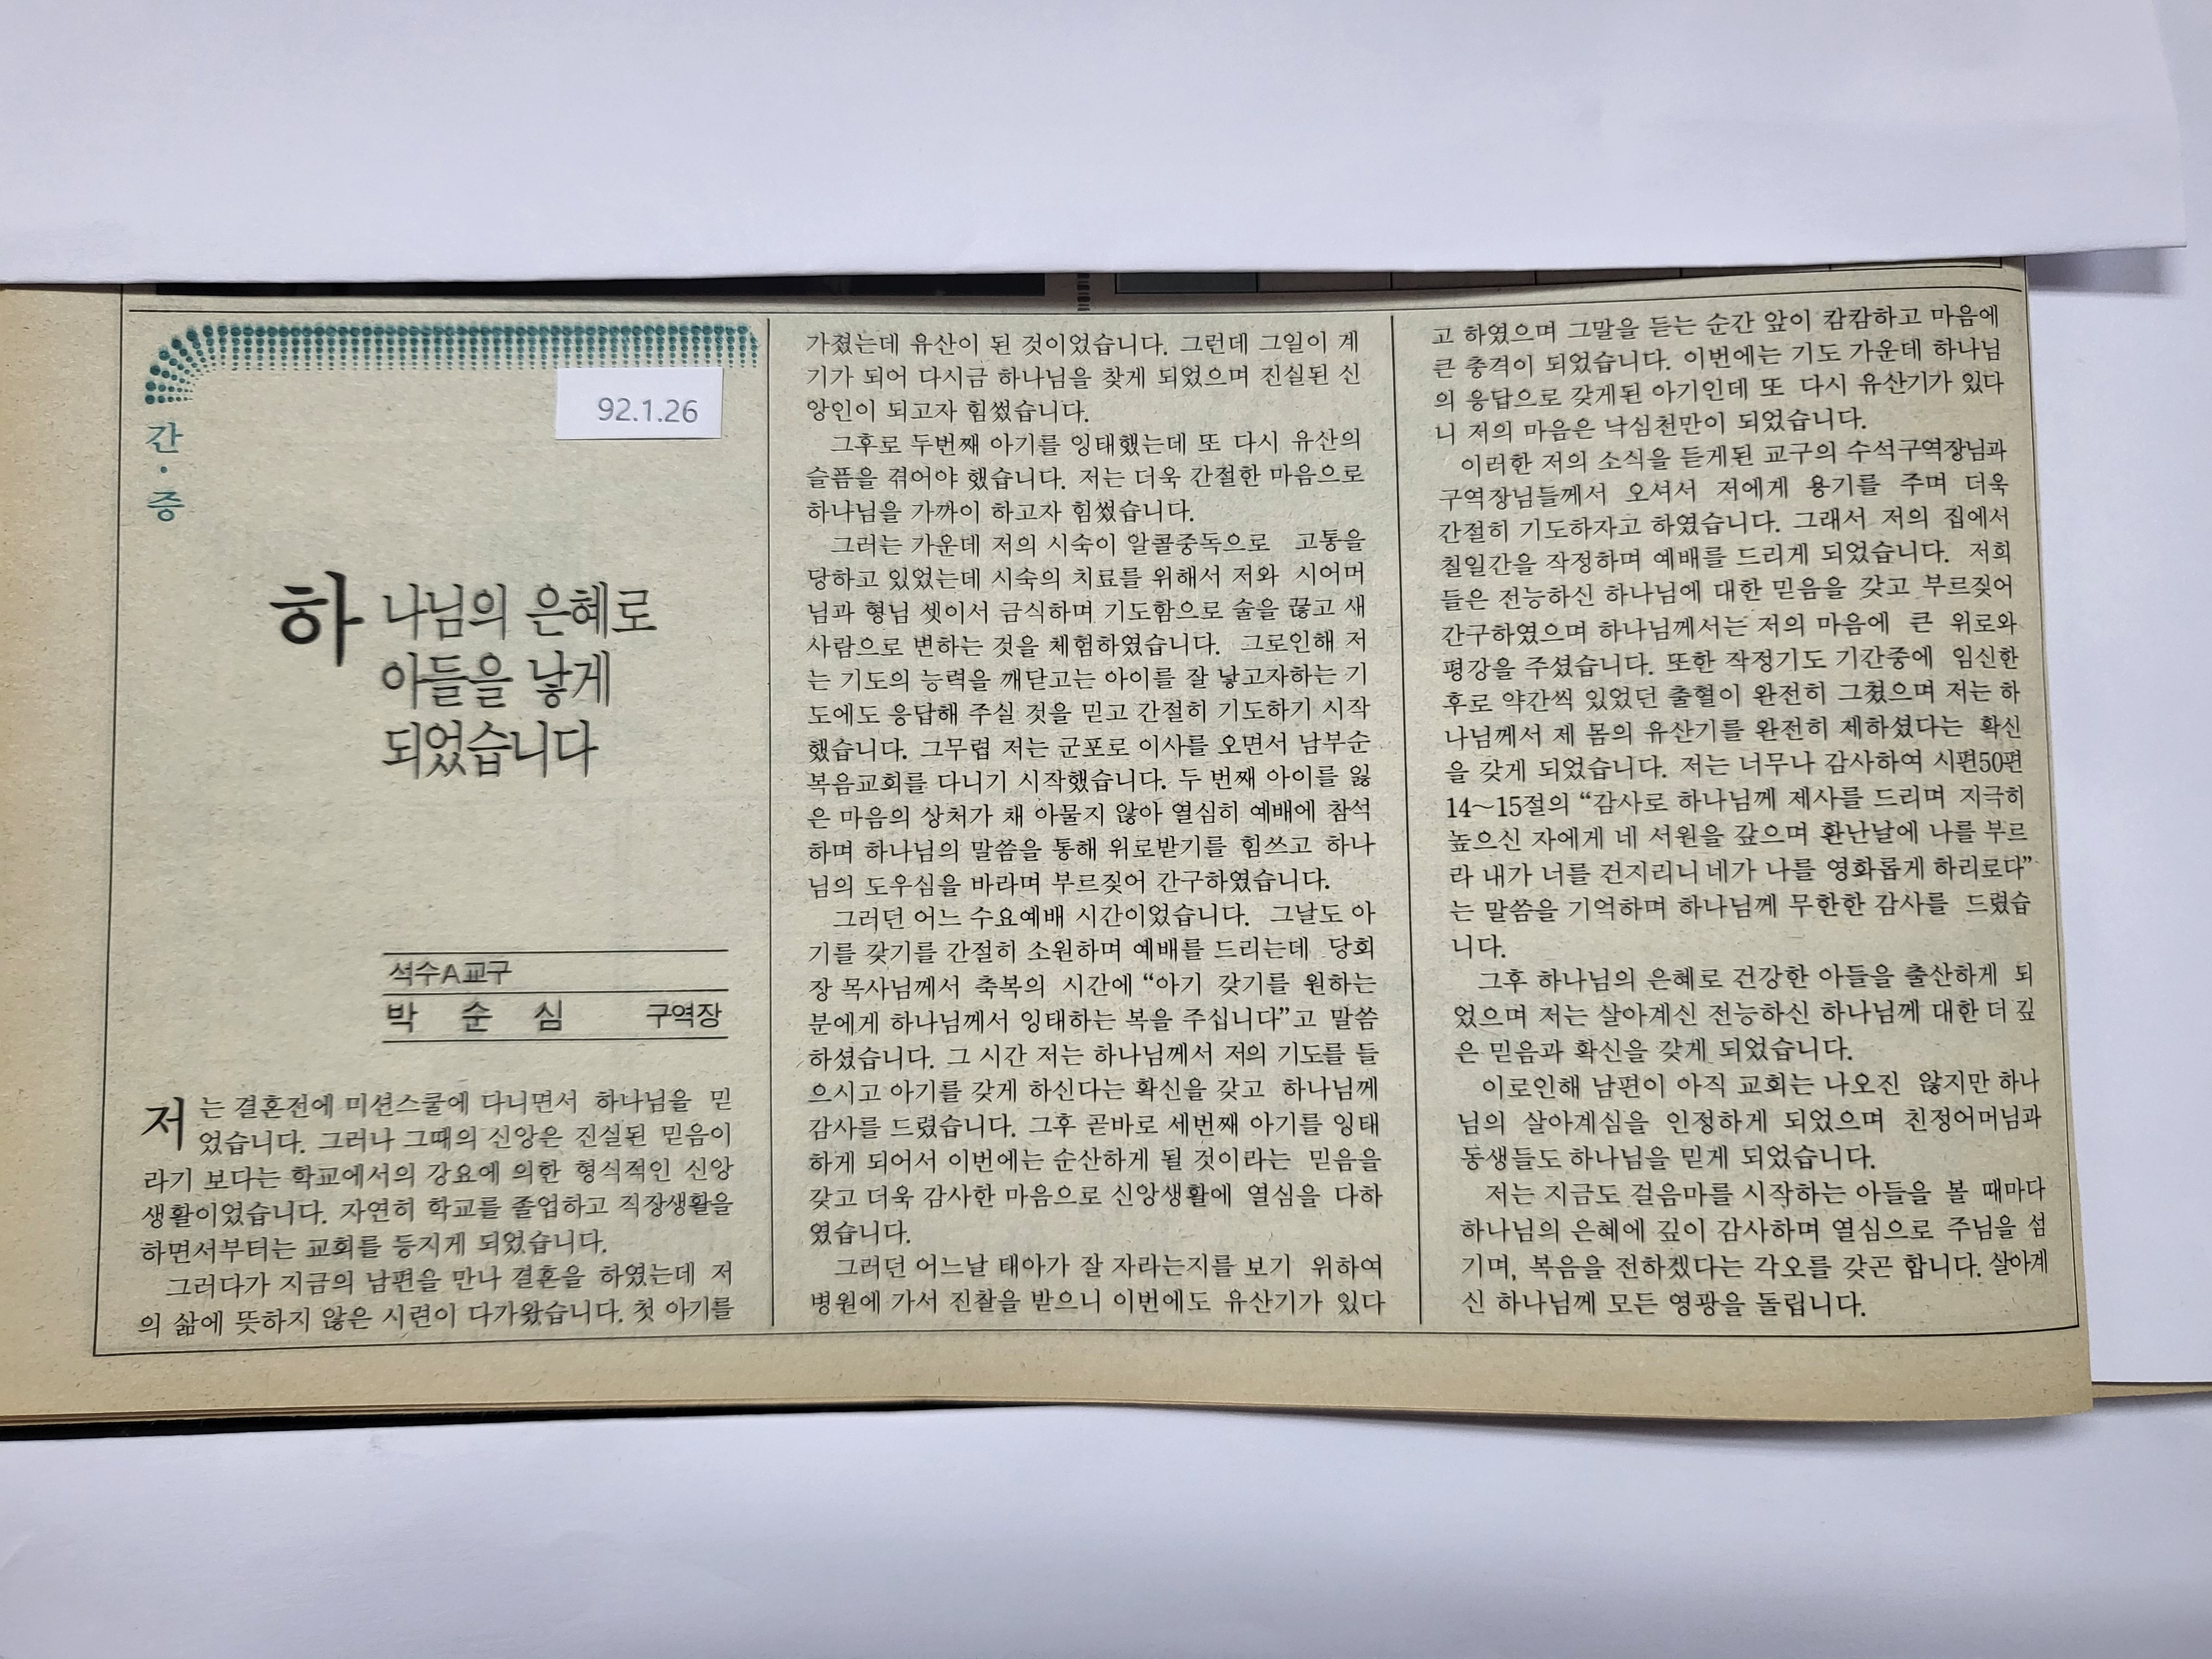 92.1.26
간·증
하나님의 은혜로
아들을 낳게
되었습니다
석수A교구
박 순 심 구역장
저는 결혼전에 미션스쿨에 다니면서 하나님을 믿
었습니다. 그러나 그때의 신앙은 진실된 믿음이
라기 보다는 학교에서의 강요에 의한 형식적인 신앙
생활이었습니다. 자연히 학교를 졸업하고 직장생활을
하면서부터는 교회를 등지게 되었습니다.
그러다가 지금의 남편을 만나 결혼을 하였는데 저
의 삶에 뜻하지 않은 시련이 다가왔습니다. 첫 아기를
가졌는데 유산이 된 것이었습니다. 그런데 그일이 계
기가 되어 다시금 하나님을 찾게 되었으며 진실된 신
앙인이 되고자 힘썼습니다.
그후로 두번째 아기를 잉태했는데 또 다시 유산의
슬픔을 겪어야 했습니다. 저는 더욱 간절한 마음으로
하나님을 가까이 하고자 힘썼습니다.
그러는 가운데 저의 시숙이 알콜중독으로 고통을
당하고 있었는데 시숙의 치료를 위해서 저와 시어머
님과 형님 셋이서 금식하며 기도함으로 술을 끊고 새
사람으로 변하는 것을 체험하였습니다. 그로인해 저
는 기도의 능력을 깨닫고는 아이를 잘 낳고자하는 기
도에도 응답해 주실 것을 믿고 간절히 기도하기 시작
했습니다. 그무렵 저는 군포로 이사를 오면서 남부순
복음교회를 다니기 시작했습니다. 두 번째 아이를 잃
은 마음의 상처가 채 아물지 않아 열심히 예배에 참석
하며 하나님의 말씀을 통해 위로받기를 힘쓰고 하나
님의 도우심을 바라며 부르짖어 간구하였습니다.
그러던 어느 수요예배 시간이었습니다. 그날도 아
기를 갖기를 간절히 소원하며 예배를 드리는데 당회
장 목사님께서 축복의 시간에 “아기 갖기를 원하는
분에게 하나님께서 잉태하는 복을 주십니다”고 말씀
하셨습니다. 그 시간 저는 하나님께서 저의 기도를 들
으시고 아기를 갖게 하신다는 확신을 갖고 하나님께
감사를 드렸습니다. 그후 곧바로 세번째 아기를 잉태
하게 되어서 이번에는 순산하게 될 것이라는 믿음을
갖고 더욱 감사한 마음으로 신앙생활에 열심을 다하
였습니다.
그러던 어느날 태아가 잘 자라는지를 보기 위하여
병원에 가서 진찰을 받으니 이번에도 유산기가 있다
고 하였으며 그말을 듣는 순간 앞이 캄캄하고 마음에
큰 충격이 되었습니다. 이번에는 기도 가운데 하나님
의 응답으로 갖게된 아기인데 또 다시 유산기가 있다
니 저의 마음은 낙심천만이 되었습니다.
이러한 저의 소식을 듣게된 교구의 수석구역장님과
구역장님들께서 오셔서 저에게 용기를 주며 더욱
간절히 기도하자고 하였습니다. 그래서 저의 집에서
칠일간을 작정하며 예배를 드리게 되었습니다. 저희
들은 전능하신 하나님에 대한 믿음을 갖고 부르짖어
간구하였으며 하나님께서는 저의 마음에 큰 위로와
평강을 주셨습니다. 또한 작정기도 기간중에 임신한
후로 약간씩 있었던 출혈이 완전히 그쳤으며 저는 하
나님께서 제 몸의 유산기를 완전히 제하셨다는 확신
을 갖게 되었습니다. 저는 너무나 감사하여 시편50편
14～15절의 “감사로 하나님께 제사를 드리며 지극히
높으신 자에게 네 서원을 갚으며 환난날에 나를 부르
라 내가 너를 건지리니 네가 나를 영화롭게 하리로다”
는 말씀을 기억하며 하나님께 무한한 감사를 드렸습
니다.
그후 하나님의 은혜로 건강한 아들을 출산하게 되
었으며 저는 살아계신 전능하신 하나님께 대한 더 깊
은 믿음과 확신을 갖게 되었습니다.
이로인해 남편이 아직 교회는 나오진 않지만 하나
님의 살아계심을 인정하게 되었으며 친정어머님과
동생들도 하나님을 믿게 되었습니다.
저는 지금도 걸음마를 시작하는 아들을 볼 때마다
하나님의 은혜에 깊이 감사하며 열심으로 주님을 섬
기며, 복음을 전하겠다는 각오를 갖곤 합니다. 살아계
신 하나님께 모든 영광을 돌립니다.